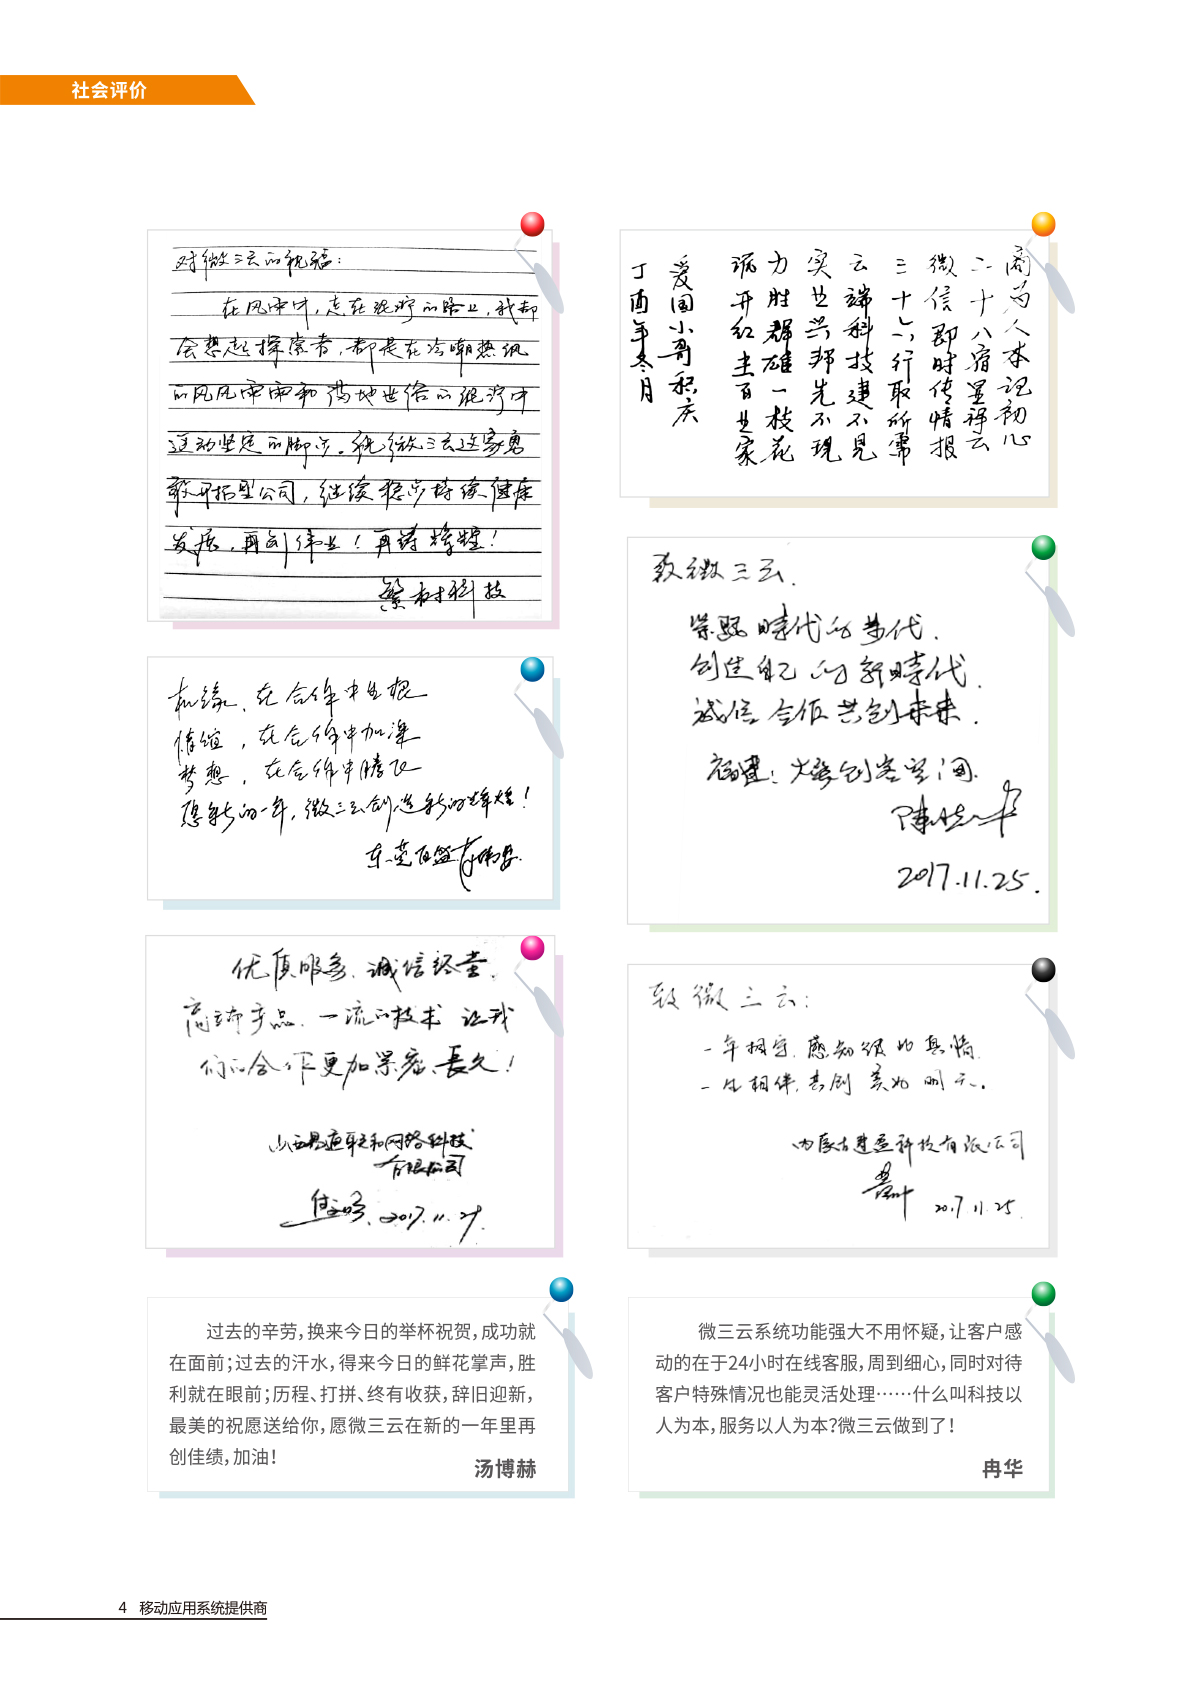 社会评价
对微三云的祝福：
在风雨中，走在泥泞的路上，我都
会想起探索者，都是在冷嘲热讽
的风风雨雨和满地世俗的泥泞中
迈动坚定的脚步。祝微三云这家勇
敢开拓型公司，继续稳步持续健康
发展，再创伟业！再铸辉煌！
繁材科技
商为人本记初心
二十八宿星译云
微信即时传情报
三十六行取所需
云端科技建不见
实业兴邦先不现
力胜群雄一枝花
派开红生百业家
爱国小哥积庆
丁酉年冬月
机缘，在合作中生根
情谊，在合作中加深
梦想，在合作中腾飞
愿新的一年，微三云创造新的辉煌！
东莞百盛
致微三云.
紧跟時代的步代.
创造自己的新時代.
诚信合作共创未来.
福建：火种创客空间.
2017.11.25.
优质服务、诚信经营、
高端产品、一流的技术 让我
们的合作更加紧密、長久！
山西易通联和网络科技
有限公司
2017.11.29.
致微三云：
一年相守，感知彼此真情.
一生相伴，共创美好明天.
内蒙古建盈科技有限公司
2017.11.25.
过去的辛劳，换来今日的举杯祝贺，成功就
在面前；过去的汗水，得来今日的鲜花掌声，胜
利就在眼前；历程、打拼、终有收获，辞旧迎新，
最美的祝愿送给你，愿微三云在新的一年里再
创佳绩，加油！
汤博赫
微三云系统功能强大不用怀疑，让客户感
动的在于24小时在线客服，周到细心，同时对待
客户特殊情况也能灵活处理……什么叫科技以
人为本，服务以人为本?微三云做到了！
冉华
4 移动应用系统提供商